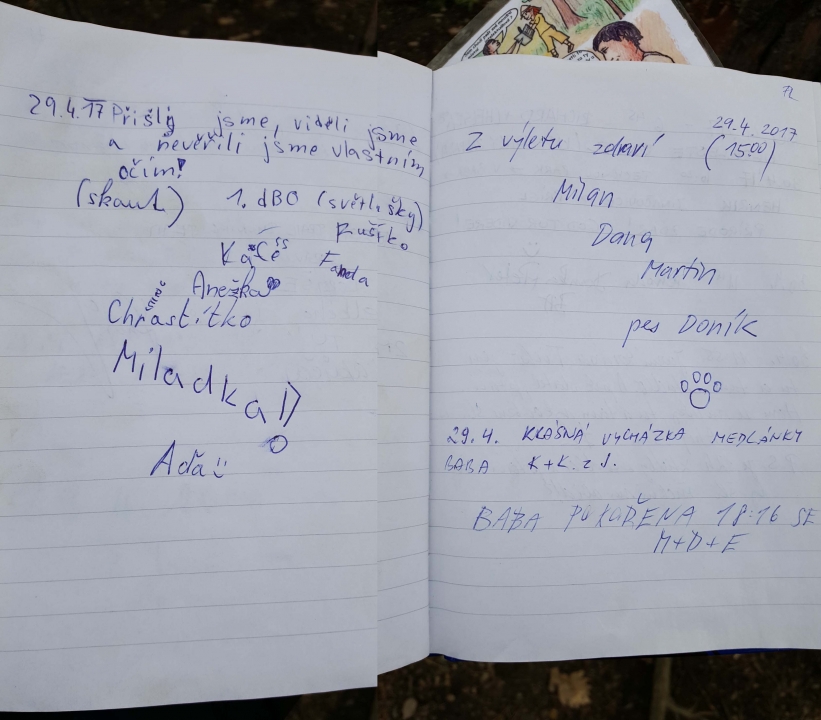 29.4.17 Přišly jsme, viděli jsme
a nevěřili jsme vlastním
očím!
(skaut) 1. dBO (světlušky)
Fuštko
Káče
Fanda
Anežka
Chrastítko
Miladka!)
Aďa
72
29.4.2017
Z výletu zdraví (15:00)
Milan
Dana
Martin
pes Doník
29.4. KRÁSNÁ VYCHÁZKA MEDLÁNKY
BABA K+K. z J.
BABA POKOŘENA 18:16 SE
M+D+E